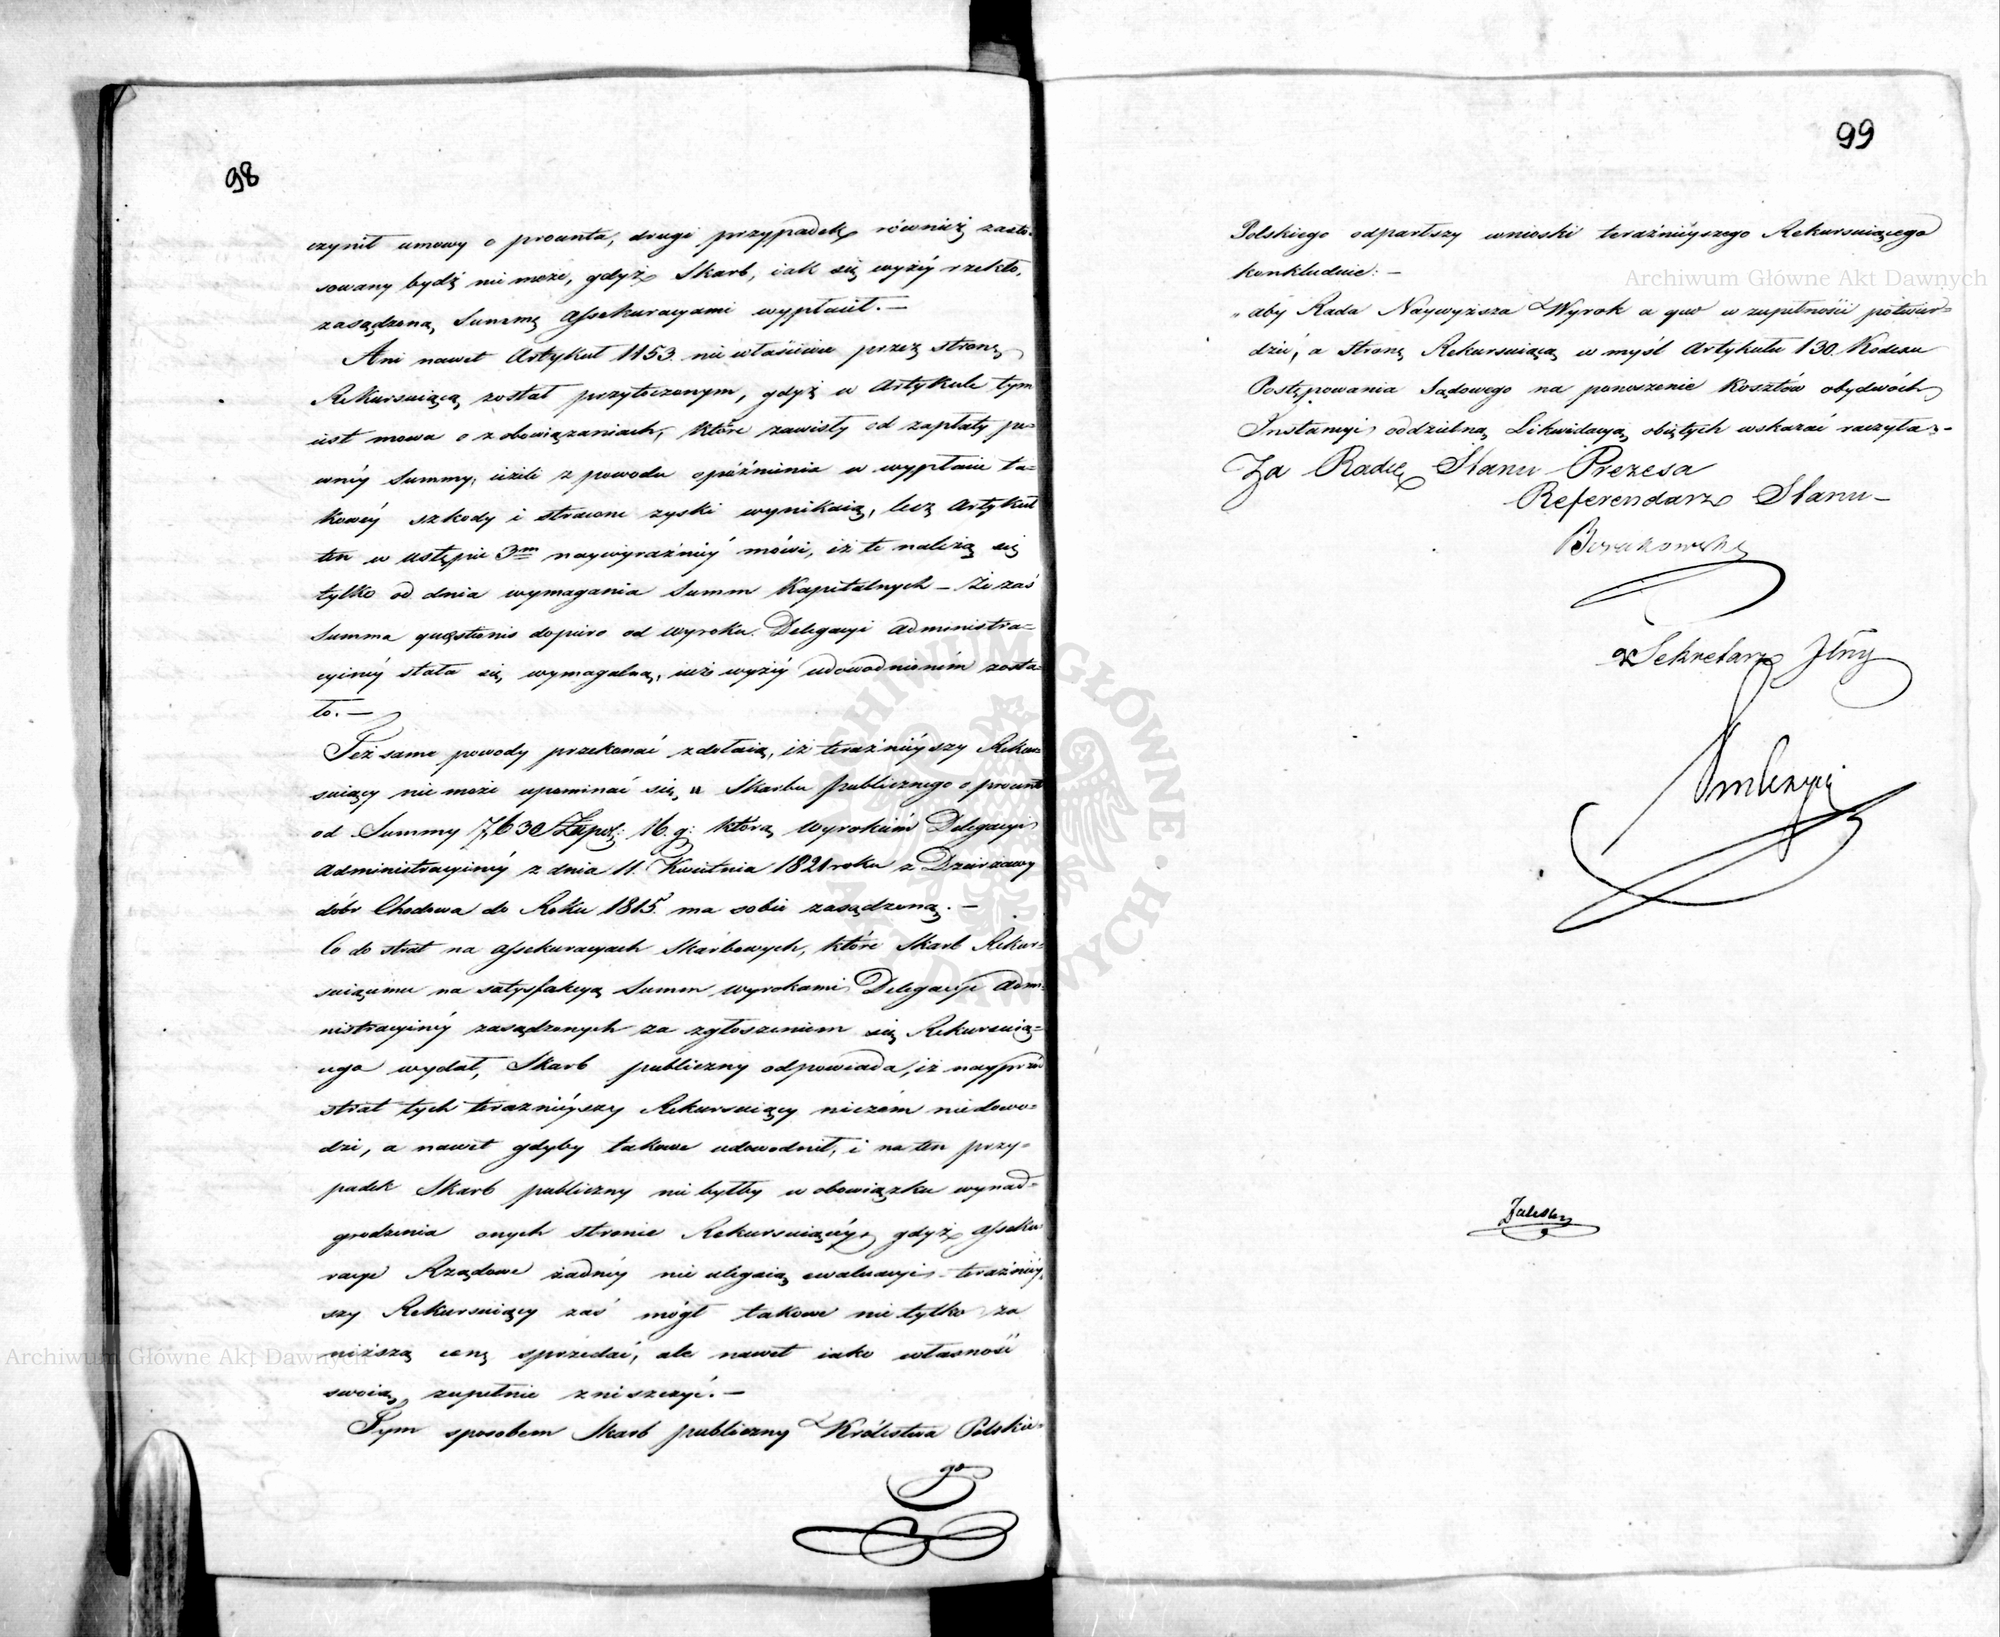 98
czynił umowy o procenta, drugi przypadek również zasto-
sowany bydź nie może, gdyż Skarb, iak się wyżéy rzekło,
zasądzoną Summę assekuracyami wypłacił. —
Ani nawet Artykuł 1153. nie właściwie przez stronę
Rekursuiącą został przytoczonym, gdyż w Artykule tym
iest mowa o zobowiązaniach, które zawisły od zapłaty pe-
wnéy Summy, ieżeli z powodu opóźnienia w wypłacie ta-
kowéy szkody i stracone zyski wynikaią, lecz Artykuł
ten w ustępie 3m naywyraźniéy mówi, iż te należą się
tylko od dnia wymagania Summ Kapitalnych — Że zaś
Summa quaestionis dopiero od wyroku Delegacyi Administra-
cyinéy stała się wymagalną, iuż wyżéy udowodnioném zosta-
ło. —
Też same powody przekonać zdołaią, iż teraźnieyszy Rekur-
suiący nie może upominać się u Skarbu publicznego o procent
od Summy 16. g: którą Wyrokiem Delegacyi
Administracyinéy z dnia 11. Kwietnia 1821 roku z Dzierżawy
dóbr Chodowa do Roku 1815. ma sobie zasądzoną. —
Co do strat na assekuracyach Skarbowych, które Skarb Rekur-
suiącemu na satysfakcyą Summ wyrokami Delegacyi Admi-
nistracyinéy zasądzonych za zgłoszeniem się Rekursuią-
cego wydał, Skarb publiczny odpowiada, iż nayprzód
strat tych teraznieyszy Rekursuiący niczém nie dowo-
dzi, a nawet gdyby takowe udowodnił, i na ten przy-
padek Skarb publiczny nie byłby w obowiązku wynad-
grodzenia onych stronie Rekursuiącéy, gdyż asseku-
racye Rządowe żadnéy nie ulegaią ewaluacyi — teraźniey-
szy Rekursuiący zaś mógł takowe nie tylko za
niższą cenę sprzedać, ale nawet iako własność
swoią zupełnie zniszczyć. —
Tym sposobem Skarb publiczny Królestwa Polskie-
go
99
Polskiego odparłszy wnioski teraźnieyszego Rekursuiącego
konkluduie: —
„ aby Rada Naywyższa Wyrok a quo w zupełności potwier-
dzić, a stronę Rekursuiącą w myśl Artykułu 130. Kodexu
Postępowania Sądowego na ponoszenie kosztów obydwóch
Instancyi oddzielną Likwidacyą obiętych wskazać raczyła. —
Za Radcę Stanu Prezesa
Referendarz Stanu —
Sekretarz Jlny
Zaleski
Archiwum Główne Akt Dawnych
Archiwum Główne Akt Dawnych
ARCHIWUM GŁÓWNE AKT DAWNYCH